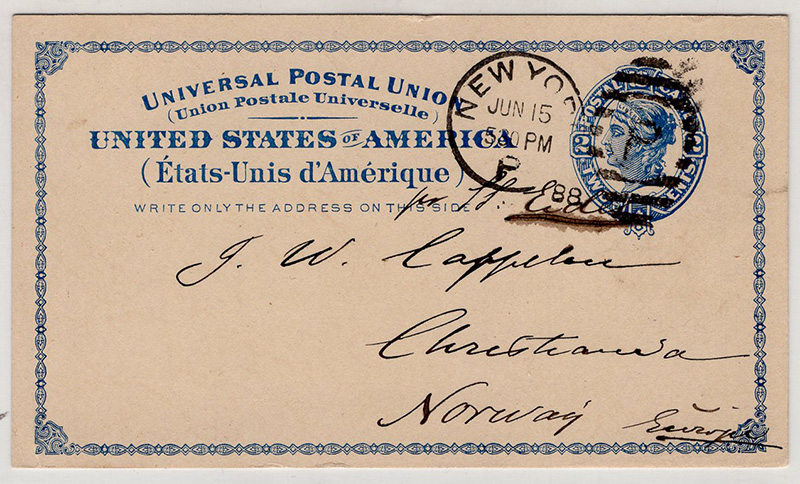 UNIVERSAL POSTAL UNION
(Union Postale Universelle)
UNITED STATES OF AMERICA
(États-Unis d'Amérique)
WRITE ONLY THE ADDRESS ON THIS SIDE
NEW YO
JUN 15
530 PM
88
POSTAL
2 CENTS 2
per St. Eider
J. W. Cappelen
Christiania
Norway
Europe